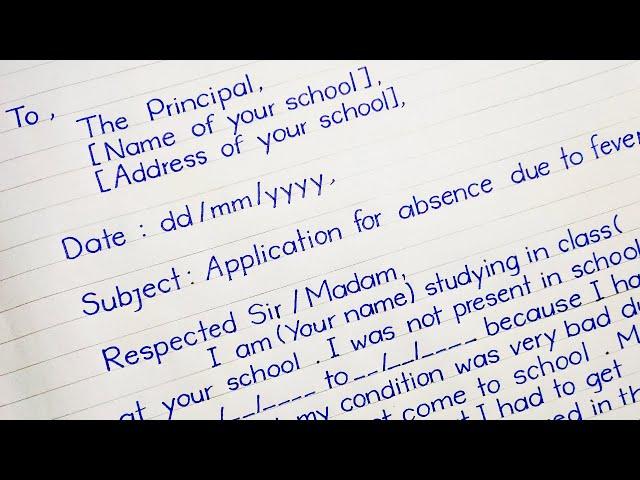 To,
The Principal,
[Name of your school],
[Address of your school],
Date : dd/mm/yyyy,
Subject: Application for absence due to fever
Respected Sir/Madam,
I am (Your name) studying in class(
at your school. I was not present in school
__/__/____ to __/__/____ because I ha
my condition was very bad du
come to school. M
I had to get
in th